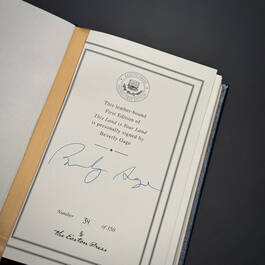 This leather-bound
First Edition of
This Land is Your Land
is personally signed by
Beverly Gage
Beverly Gage
Number 34 of 150
The Easton Press